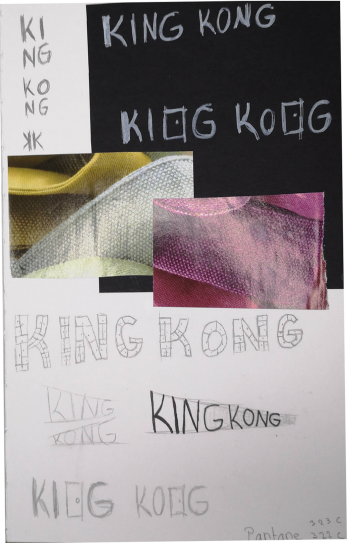 KI
NG
KO
NG
KK
KING KONG
KI⊡G KO⊡G
KING KONG
KING
KONG
KING KONG
KI⊡G KO⊡G
Pantone